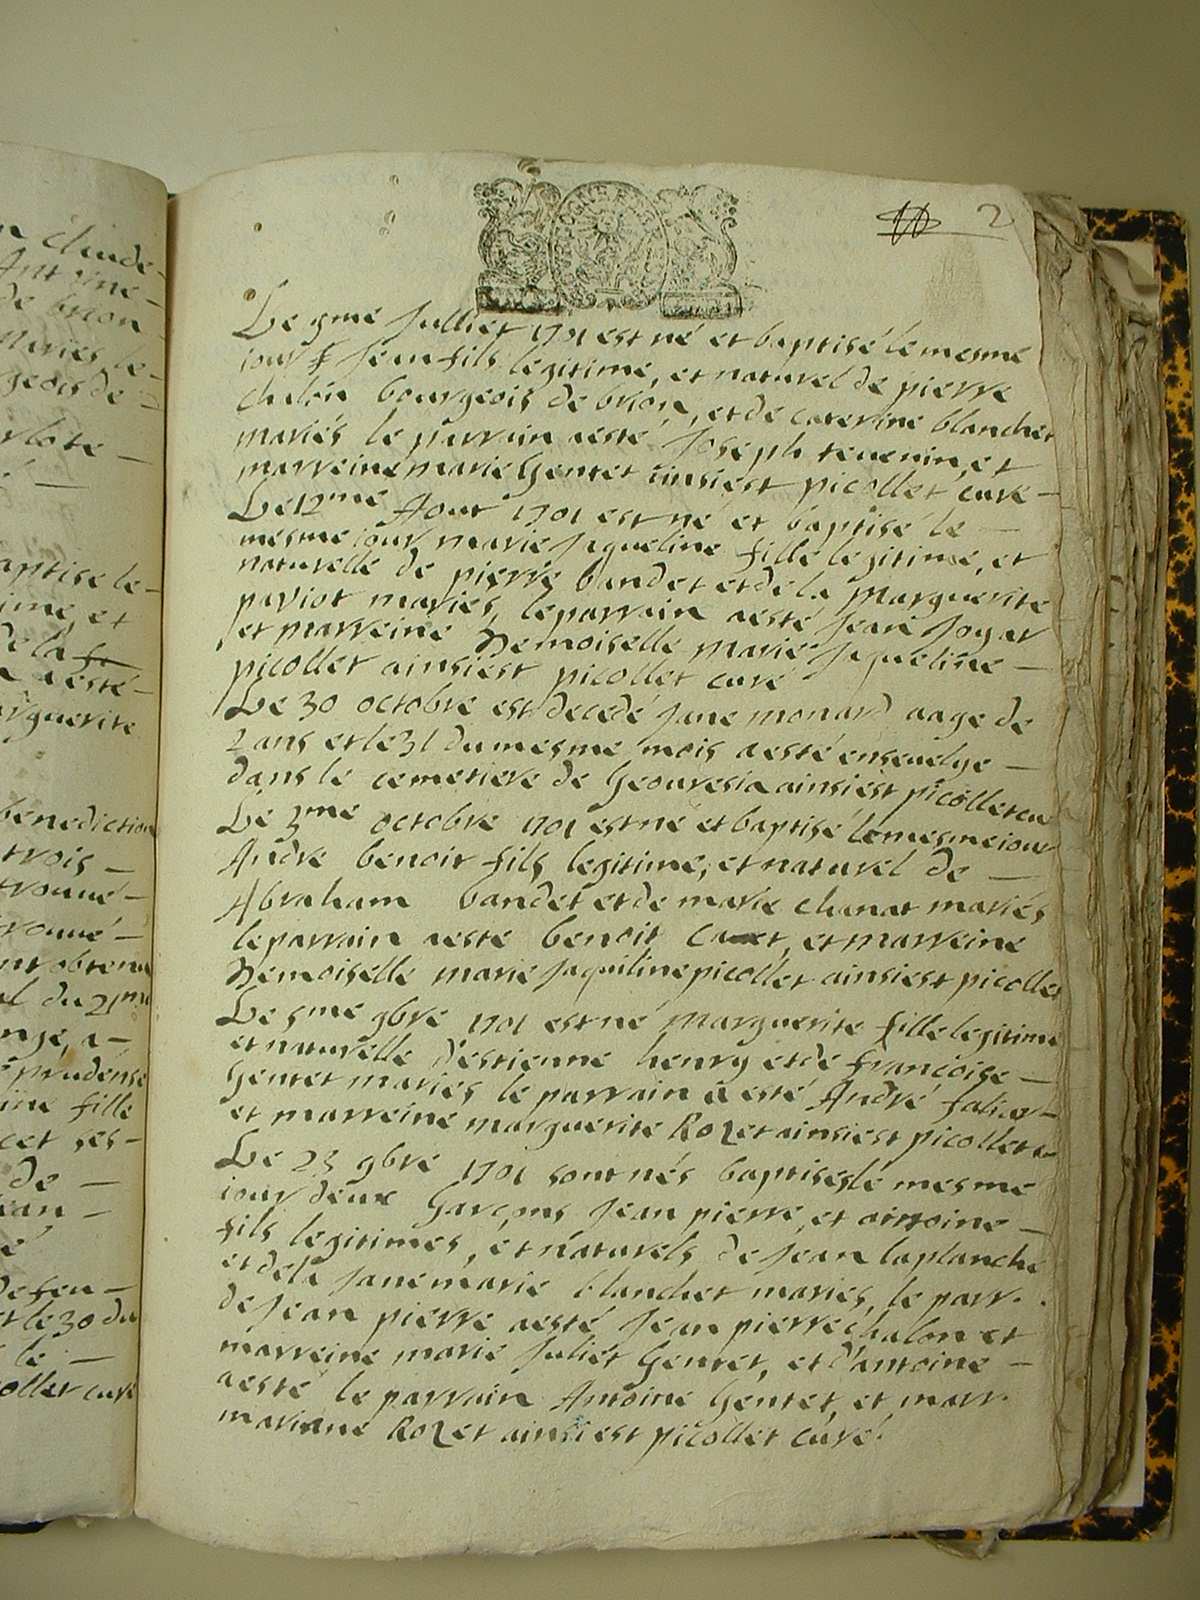 n Claude
Antoine
de brion
maries le
geois de
aptise le
ime, et
de la
a esté
arguerite
benediction
trois
trouué
trouué
nt obtenu
du 21me
prudense
ine fille
cet ses
de
ean
defeu
et le 30 du
le
collet curé
2
Le 9me Julliet 1701 est né et baptisé le mesme
iour Jean fils legitime, et naturel de pierre
chalon bourgeois de brion, et de caterine blanchet
mariés le parrain a esté Joseph teuenin, et
marreine marie Gentet ainsi est picollet curé
Le 12me Aout 1701 est né et baptisé le
mesme iour marie Jaqueline fille legitime, et
naturelle de pierre bandet et de la Marguerite
paviot mariés, le parrain a esté Jean Jogat
et marreine Demoiselle marie Jaqueline
picollet ainsi est picollet curé
Le 30 octobre est decedé Jane monard aage de
2 ans et le 31 du mesme mois a esté enseuelye
dans le cemetiere de Geouresia ainsi est picollet cu
Le 3me octobre 1701 est né et baptisé le mesme iour
Andre benoit fils legitime, et naturel de
Abraham bandet et de marie chanat mariés
le parrain a esté benoit et marreine
Demoiselle marie Jaquiline picollet ainsi est picollet
Le 5me 9bre 1701 est né Marguerite fille legitime
et naturelle d'estienne henry et de francoise
Gentet mariés le parrain a esté André
et marreine marguerite Rozet ainsi est picollet
Le 23 9bre 1701 sont nés baptises le mesme
iour deux Garcons Jean pierre, et antoine
fils legitimes, et naturels de Jean laplanche
et de la Jane marie blanchet mariés, le parr.
de Jean pierre a esté Jean pierre chalon et
marreine marie Juliet Gentet, et d'antoine
a esté le parrain Antoine Gentet, et marr.
mariane Rozet ainsi est picollet curé